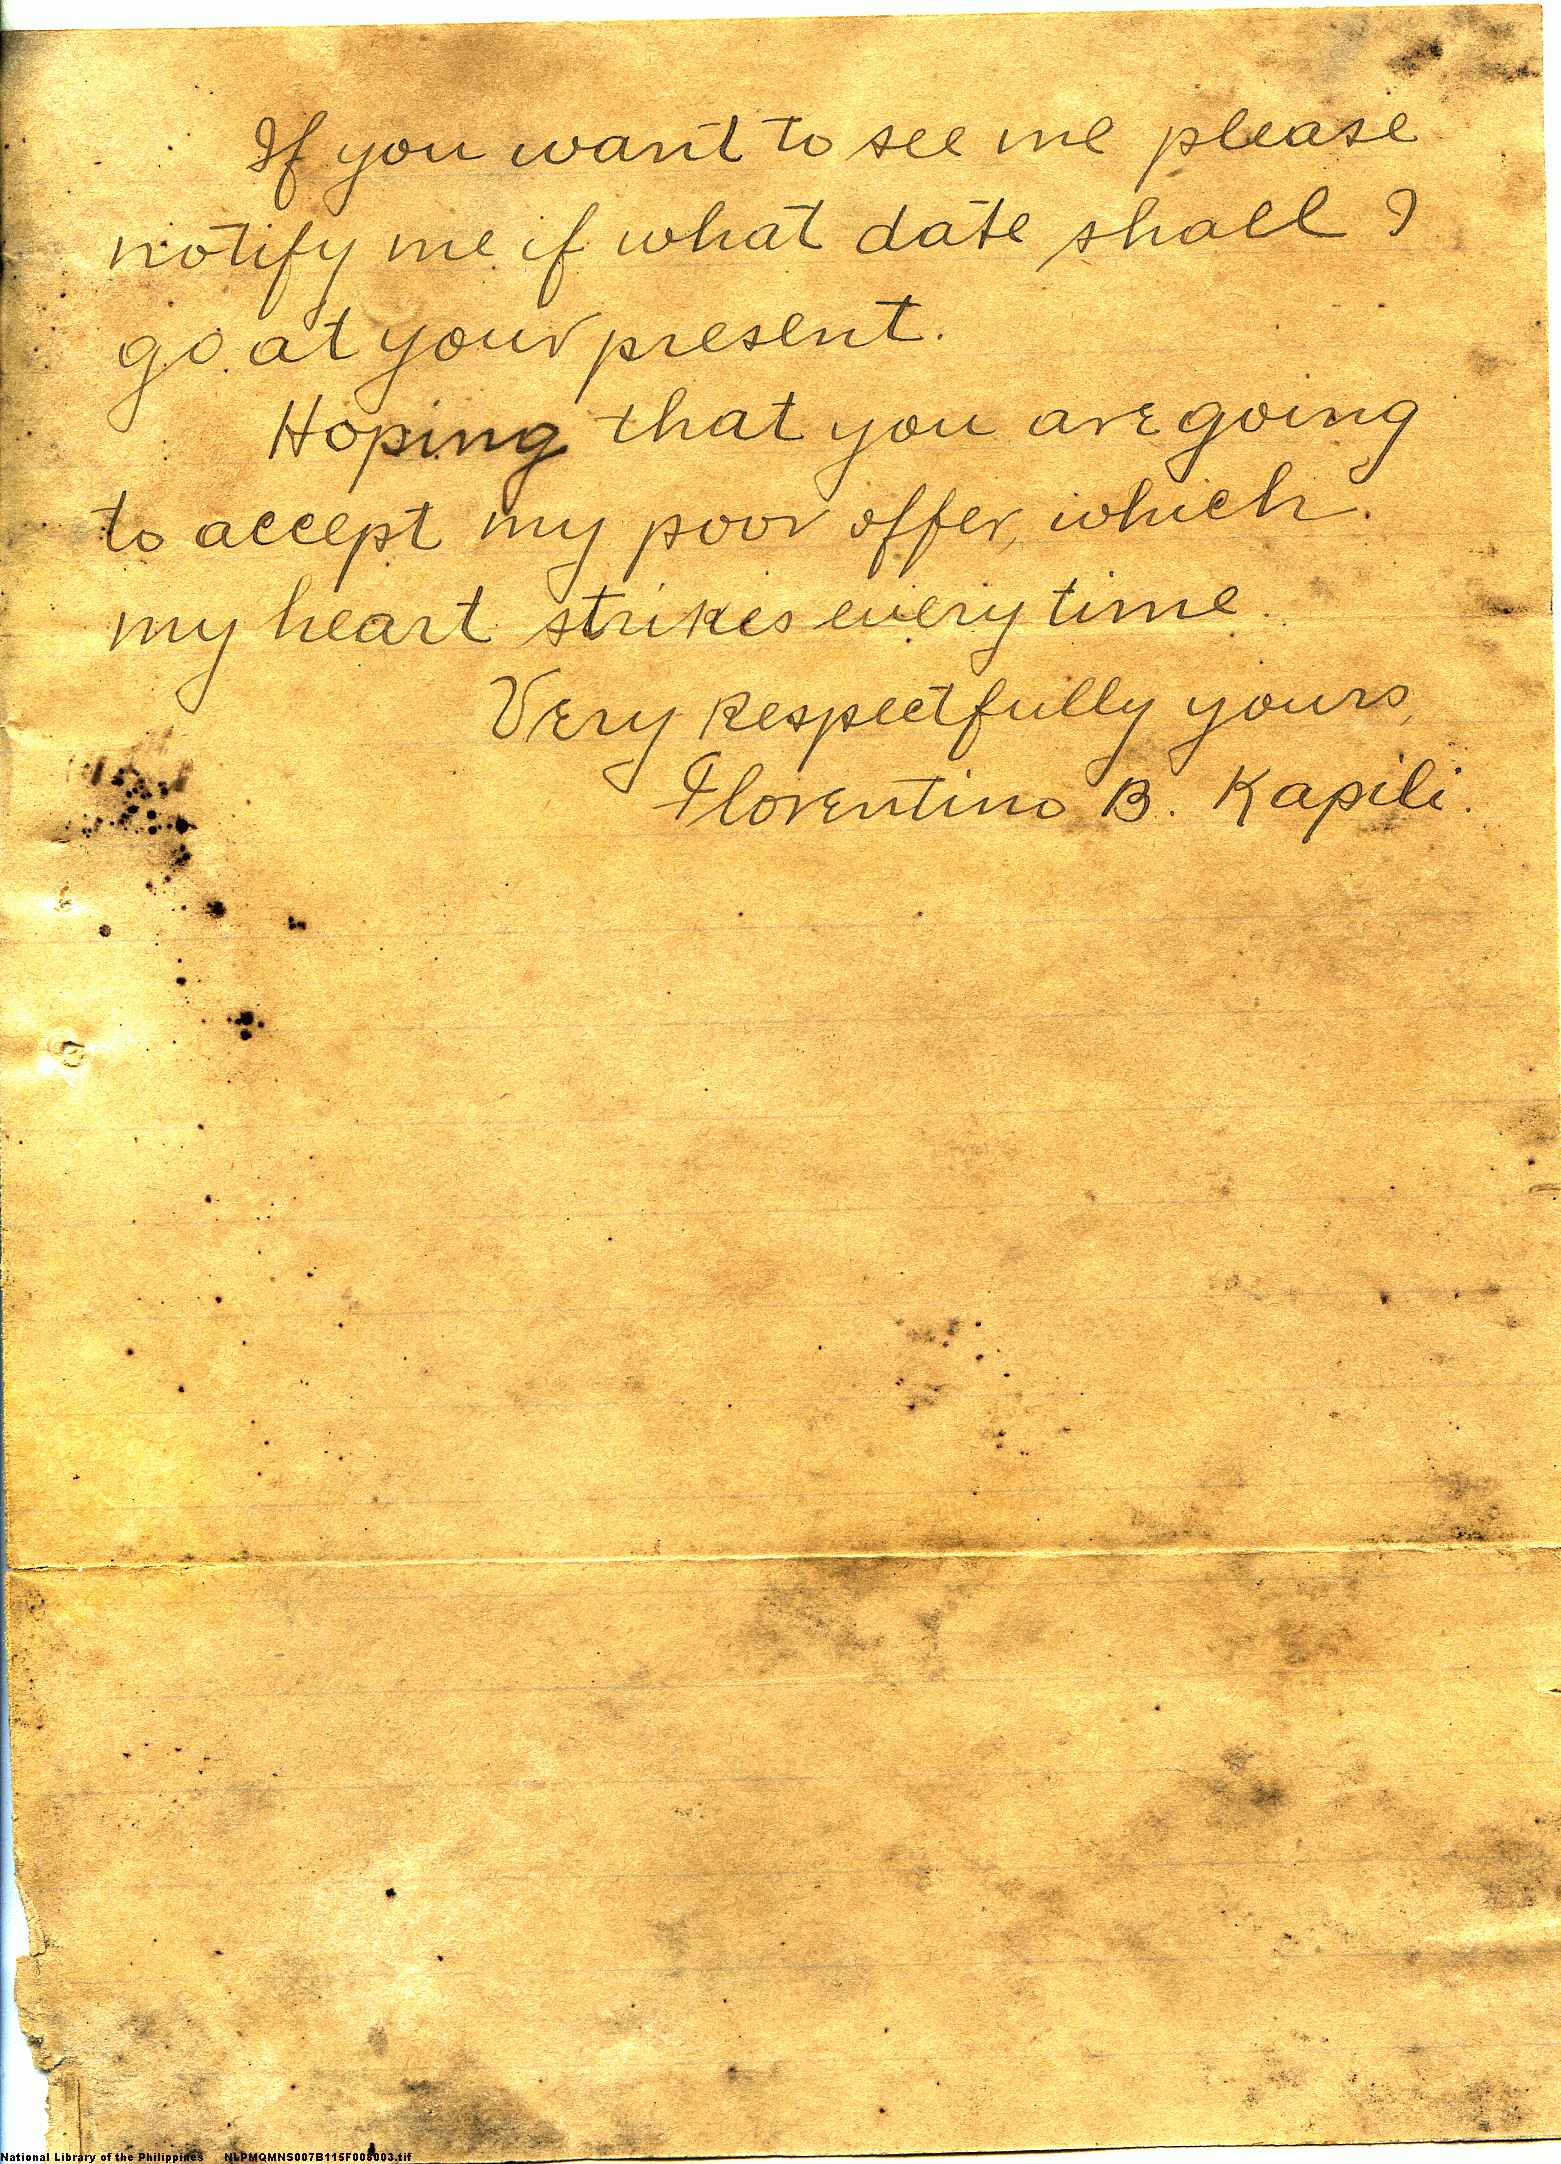 If you want to see me please
notify me if what date shall I
go at your present.
Hoping that you are going
to accept my poor offer, which
my heart strikes every time.
Very Respectfully yours,
Florentino B. Kapili.
National Library of the Philippines NLPMQMNS007B115F008003.tif